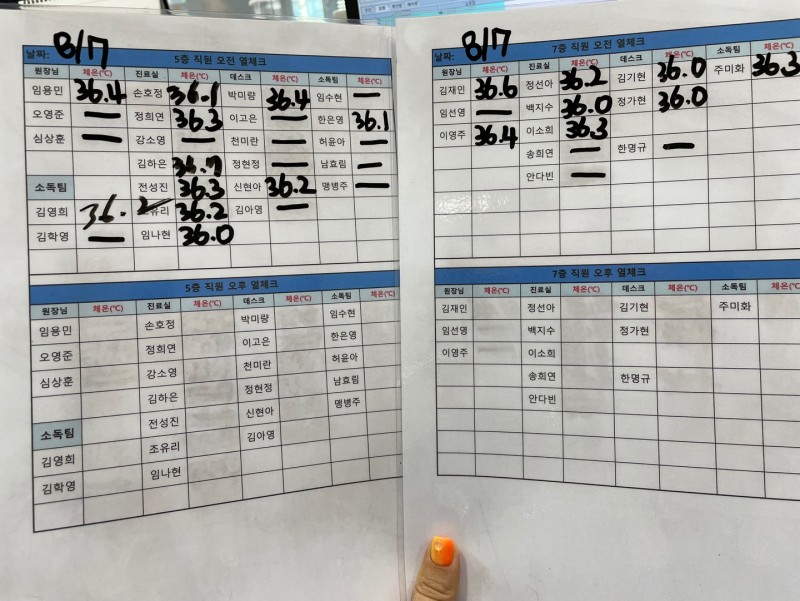 날짜: 8/7 5층 직원 오전 열체크
원장님 체온(℃) 진료실 체온(℃) 데스크 체온(℃) 소독팀 체온(℃)
임용민 36.4 손호정 36.1 박미량 36.4 임수현 —
오영준 — 정희연 36.3 이고은 — 한은영 36.1
심상훈 — 강소영 — 천미란 — 허윤아 —
김하은 36.7 정현정 — 남효림 —
소독팀 전성진 36.3 신현아 36.2 맹병주 —
김영희 36.2 조유리 36.2 김아영 —
김학영 — 임나현 36.0
5층 직원 오후 열체크
원장님 체온(℃) 진료실 체온(℃) 데스크 체온(℃) 소독팀 체온(℃)
임용민 손호정 박미량 임수현
오영준 정희연 이고은 한은영
심상훈 강소영 천미란 허윤아
김하은 정현정 남효림
소독팀 전성진 신현아 맹병주
김영희 조유리 김아영
김학영 임나현
날짜: 8/7 7층 직원 오전 열체크
원장님 체온(℃) 진료실 체온(℃) 데스크 체온(℃) 소독팀 체온(℃)
김재인 36.6 정선아 36.2 김기현 36.0 주미화 36.3
임선영 — 백지수 36.0 정가현 36.0
이영주 36.4 이소희 36.3
송희연 — 한명규 —
안다빈 —
7층 직원 오후 열체크
원장님 체온(℃) 진료실 체온(℃) 데스크 체온(℃) 소독팀 체온(℃)
김재인 정선아 김기현 주미화
임선영 백지수 정가현
이영주 이소희
송희연 한명규
안다빈